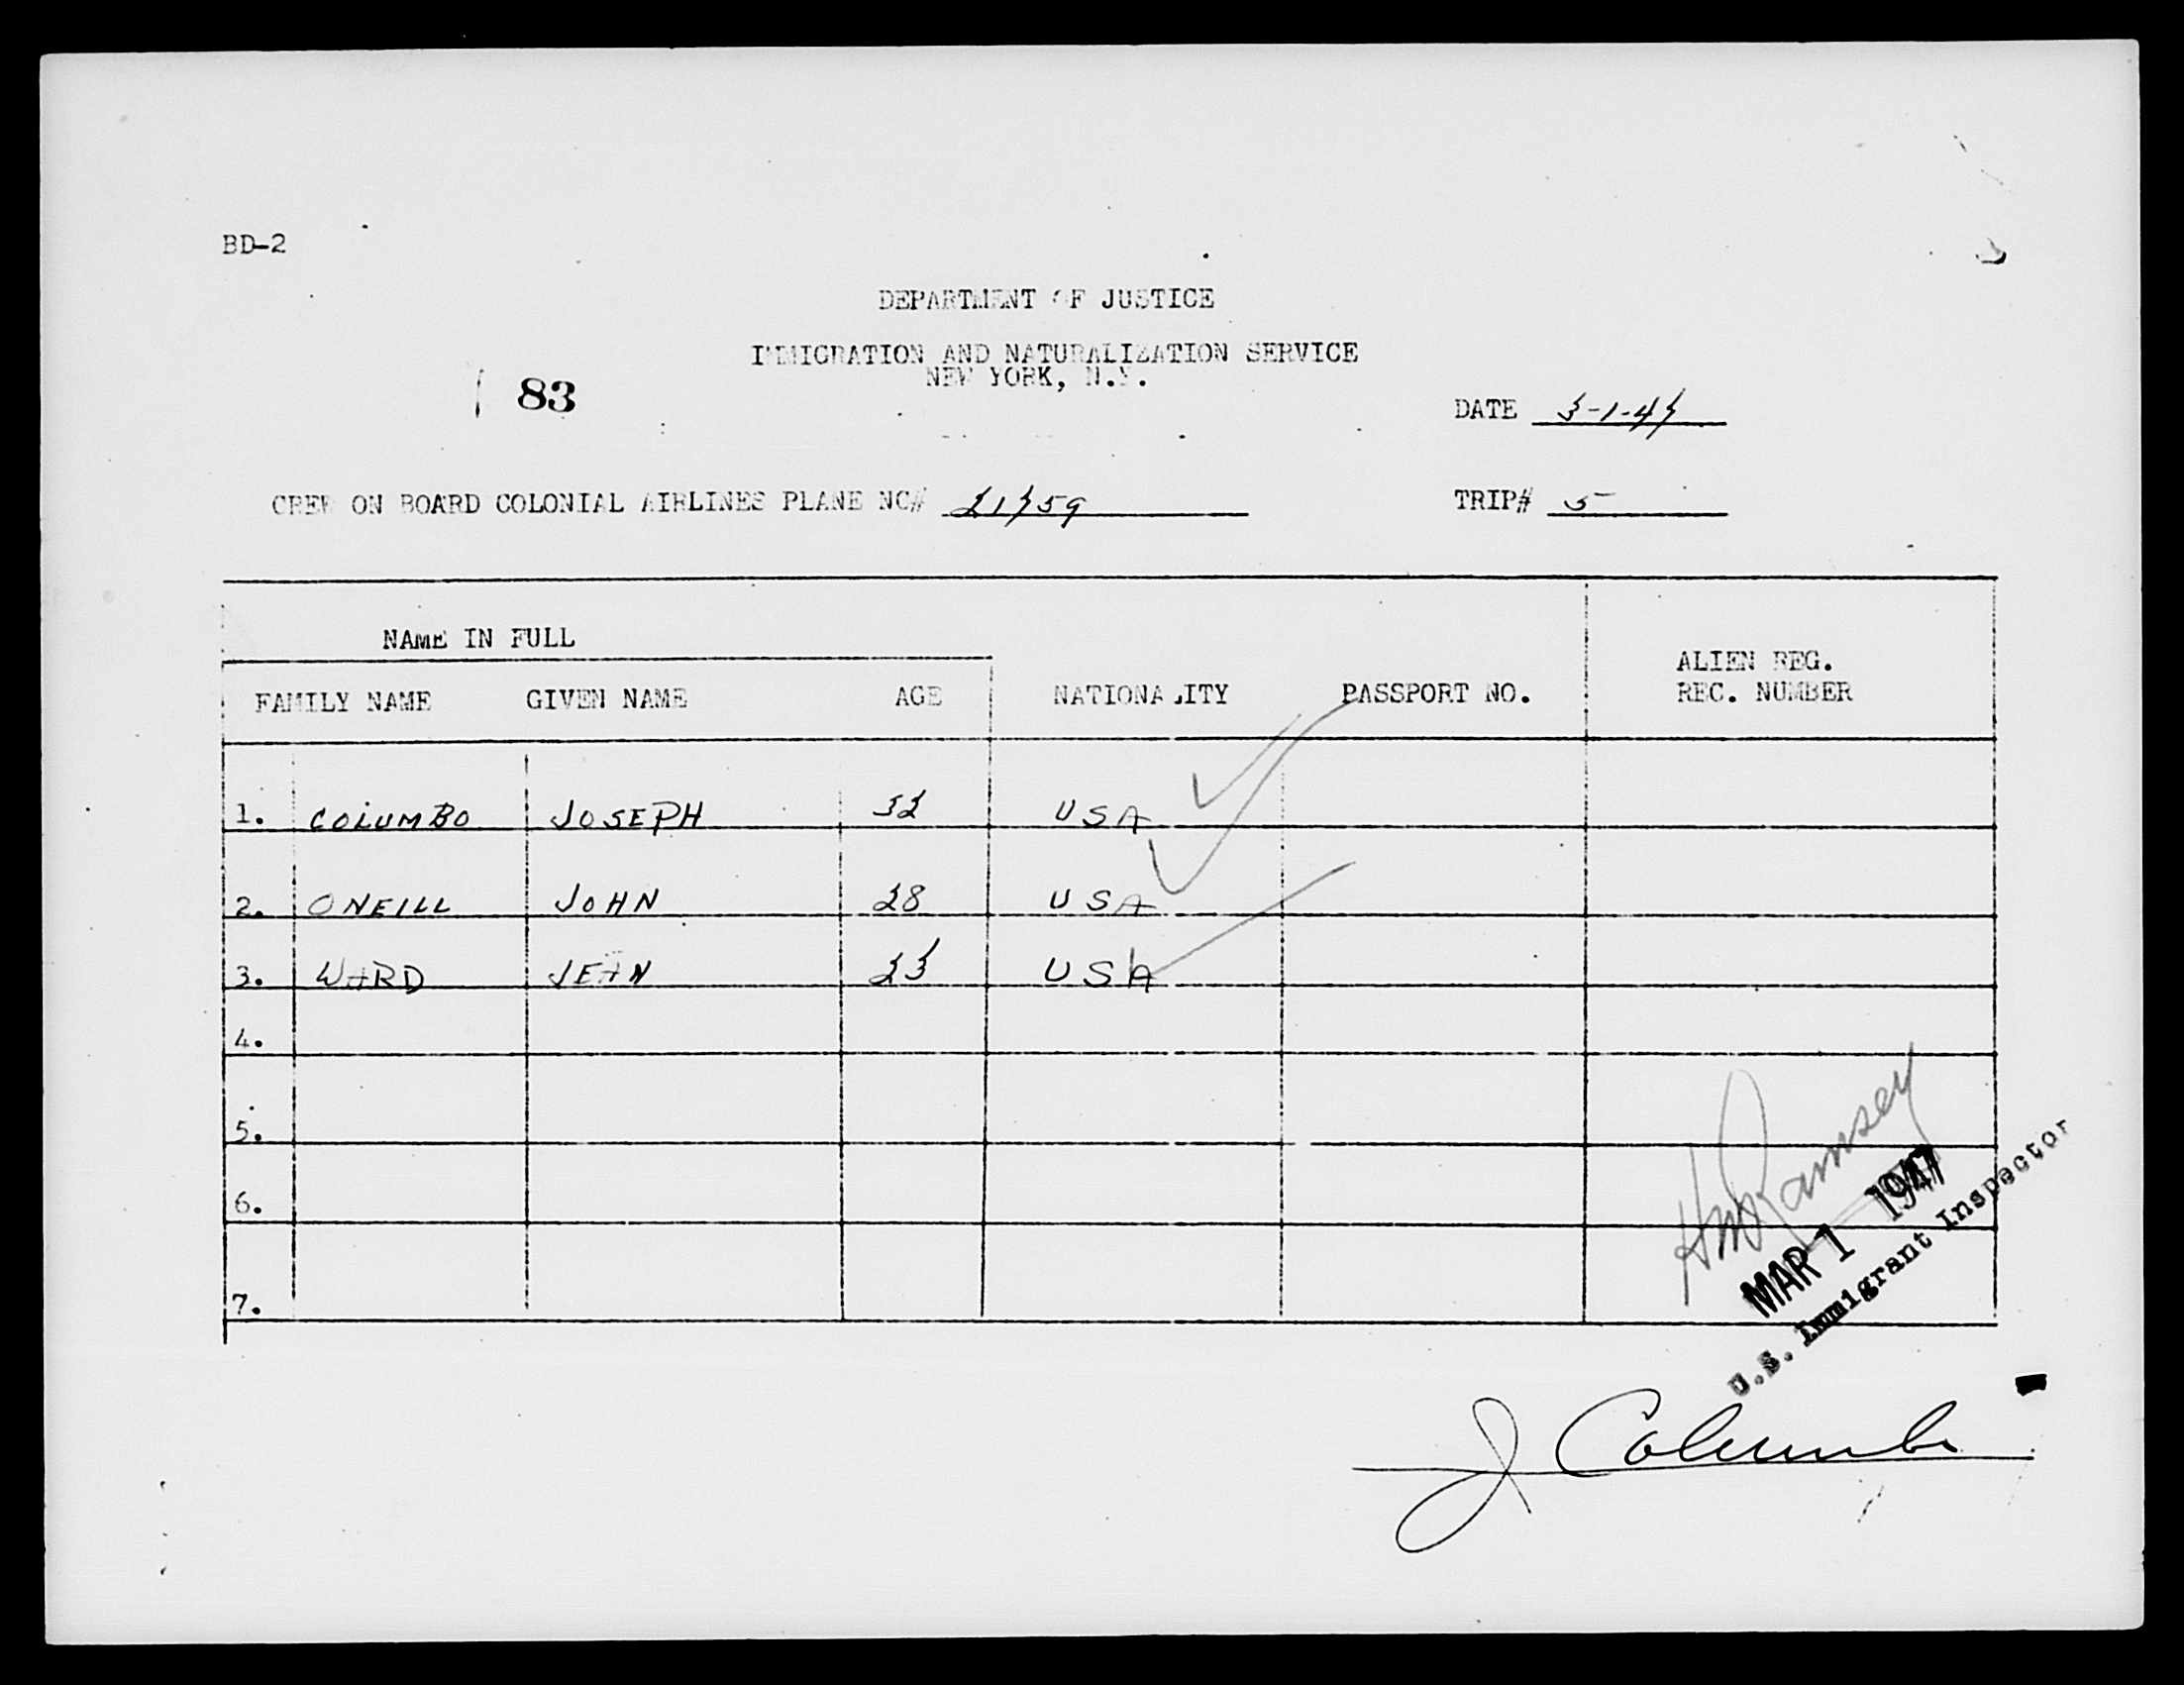 BD-2
DEPARTMENT OF JUSTICE
IMMIGRATION AND NATURALIZATION SERVICE
NEW YORK, N.Y.
83
DATE 3-1-47
CREW ON BOARD COLONIAL AIRLINES PLANE NC# 21759
TRIP# 5
NAME IN FULL
FAMILY NAME GIVEN NAME AGE NATIONALITY PASSPORT NO. ALIEN REG. REC. NUMBER
1. COLUMBO JOSEPH 32 USA
2. ONEILL JOHN 28 USA
3. WARD JEAN 23 USA
4.
5.
6.
7.
Ramsey
MAR 1 1947
U.S. Immigrant Inspector
J Columbo